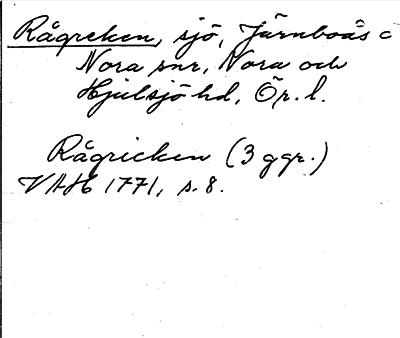 Rågreken, sjö, Järnboås o
Nora snr, Nora och
Hjulsjö hd, Ör. l.
Rågricken (3 ggr.)
VAH 1771, s. 8.